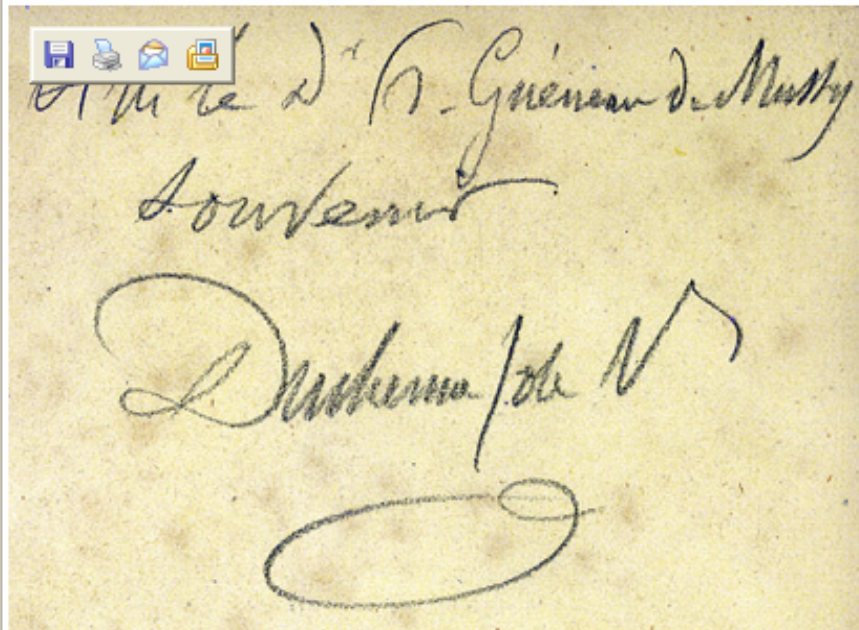 le Dr Guéneau de Mussy
souvenir
Duchenne / de